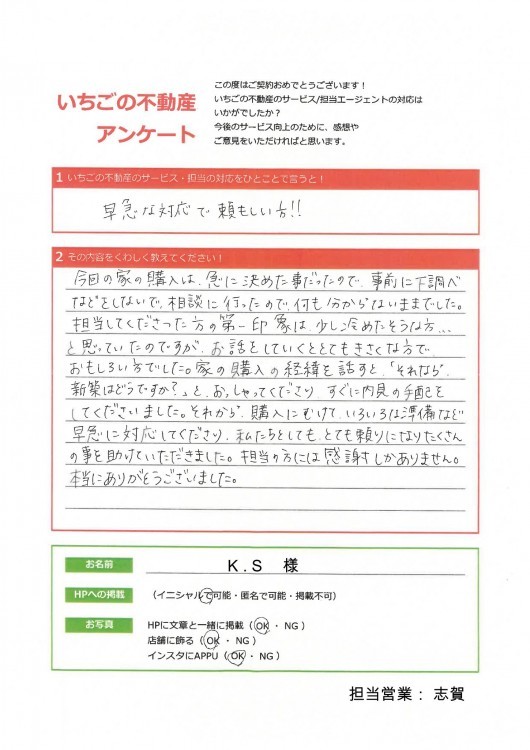 いちごの不動産
アンケート
この度はご契約おめでとうございます！
いちごの不動産のサービス/担当エージェントの対応は
いかがでしたか？
今後のサービス向上のために、感想や
ご意見をいただければと思います。
1 いちごの不動産のサービス・担当の対応をひとことで言うと！
早急な対応で頼もしい方!!
2 その内容をくわしく教えてください！
今回の家の購入は、急に決めた事だったので、事前に下調べ
などをしないで、相談に行ったので、何も分からないままでした。
担当してくださった方の第一印象は、少し冷めたそうな方…
と思っていたのですが、お話をしていくととてもきさくな方で、
おもしろい方でした。家の購入の経緯を話すと、「それなら、
新築はどうですか？」と、おっしゃってくださり、すぐに内見の手配を
してくださいました。それから、購入にむけて、いろいろな準備など
早急に対応してくださり、私たちとしても、とても頼りになりたくさん
の事を助けていただきました。担当の方には感謝しかありません。
本当にありがとうございました。
お名前 K.S 様
HPへの掲載 （イニシャルで可能・匿名で可能・掲載不可）
お写真 HPに文章と一緒に掲載（OK・NG）
店舗に飾る（OK・NG）
インスタにAPPU（OK・NG）
担当営業： 志賀